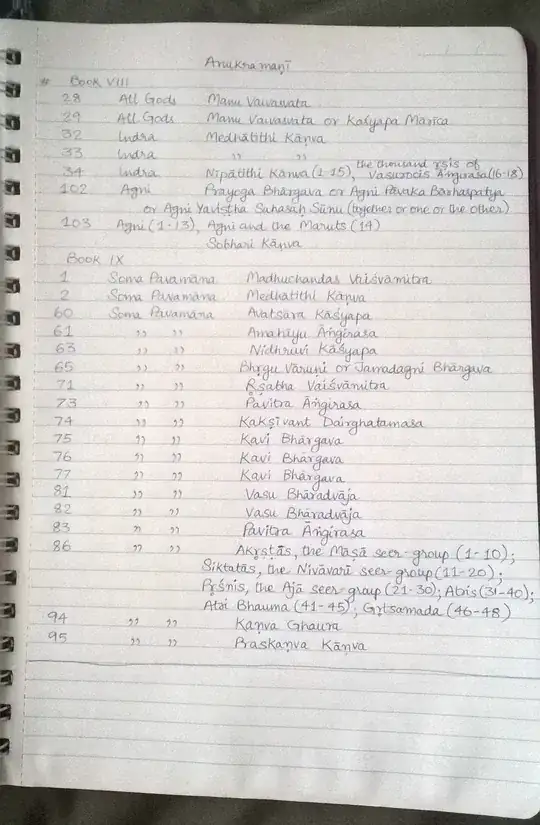 Anukramaṇī
# Book VIII
28 All Gods Manu Vaivasvata
29 All Gods Manu Vaivasvata or Kaśyapa Mārīca
32 Indra Medhātithi Kāṇva
33 Indra ,, ,,
34 Indra Nīpātithi Kāṇva (1-15), the thousand ṛsis of Vasurocis Āṅgirasa (16-18)
102 Agni Prayoga Bhārgava or Agni Pāvaka Bārhaspatya
or Agni Yaviṣṭha Sahasaḥ Sūnu (together or one or the other)
103 Agni (1-13), Agni and the Maruts (14)
Sobhari Kāṇva
Book IX
1 Soma Pavamāna Madhuchandas Vaiśvāmitra
2 Soma Pavamāna Medhātithi Kāṇva
60 Soma Pavamāna Avatsāra Kāśyapa
61 ,, ,, Amahīyu Āṅgirasa
63 ,, ,, Nidhruvi Kāśyapa
65 ,, ,, Bhṛgu Vāruṇi or Jamadagni Bhārgava
71 ,, ,, Ṛṣabha Vaiśvāmitra
73 ,, ,, Pavitra Āṅgirasa
74 ,, ,, Kakṣīvant Dairghatamasa
75 ,, ,, Kavi Bhārgava
76 ,, ,, Kavi Bhārgava
77 ,, ,, Kavi Bhārgava
81 ,, ,, Vasu Bhāradvāja
82 ,, ,, Vasu Bhāradvāja
83 ,, ,, Pavitra Āṅgirasa
86 ,, ,, Akṛṣṭās, the Māṣā seer-group (1-10);
Siktatās, the Nivāvarī seer-group (11-20);
Pṛśnis, the Ajā seer group (21-30); Atris (31-40);
Atri Bhauma (41-45); Gṛtsamada (46-48)
94 ,, ,, Kaṇva Ghaura
95 ,, ,, Praskaṇva Kāṇva